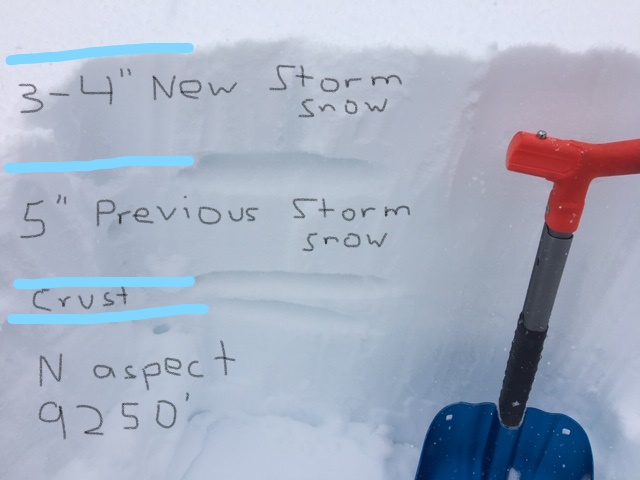 3-4" New Storm
snow
5" Previous Storm
snow
Crust
N aspect
9250'